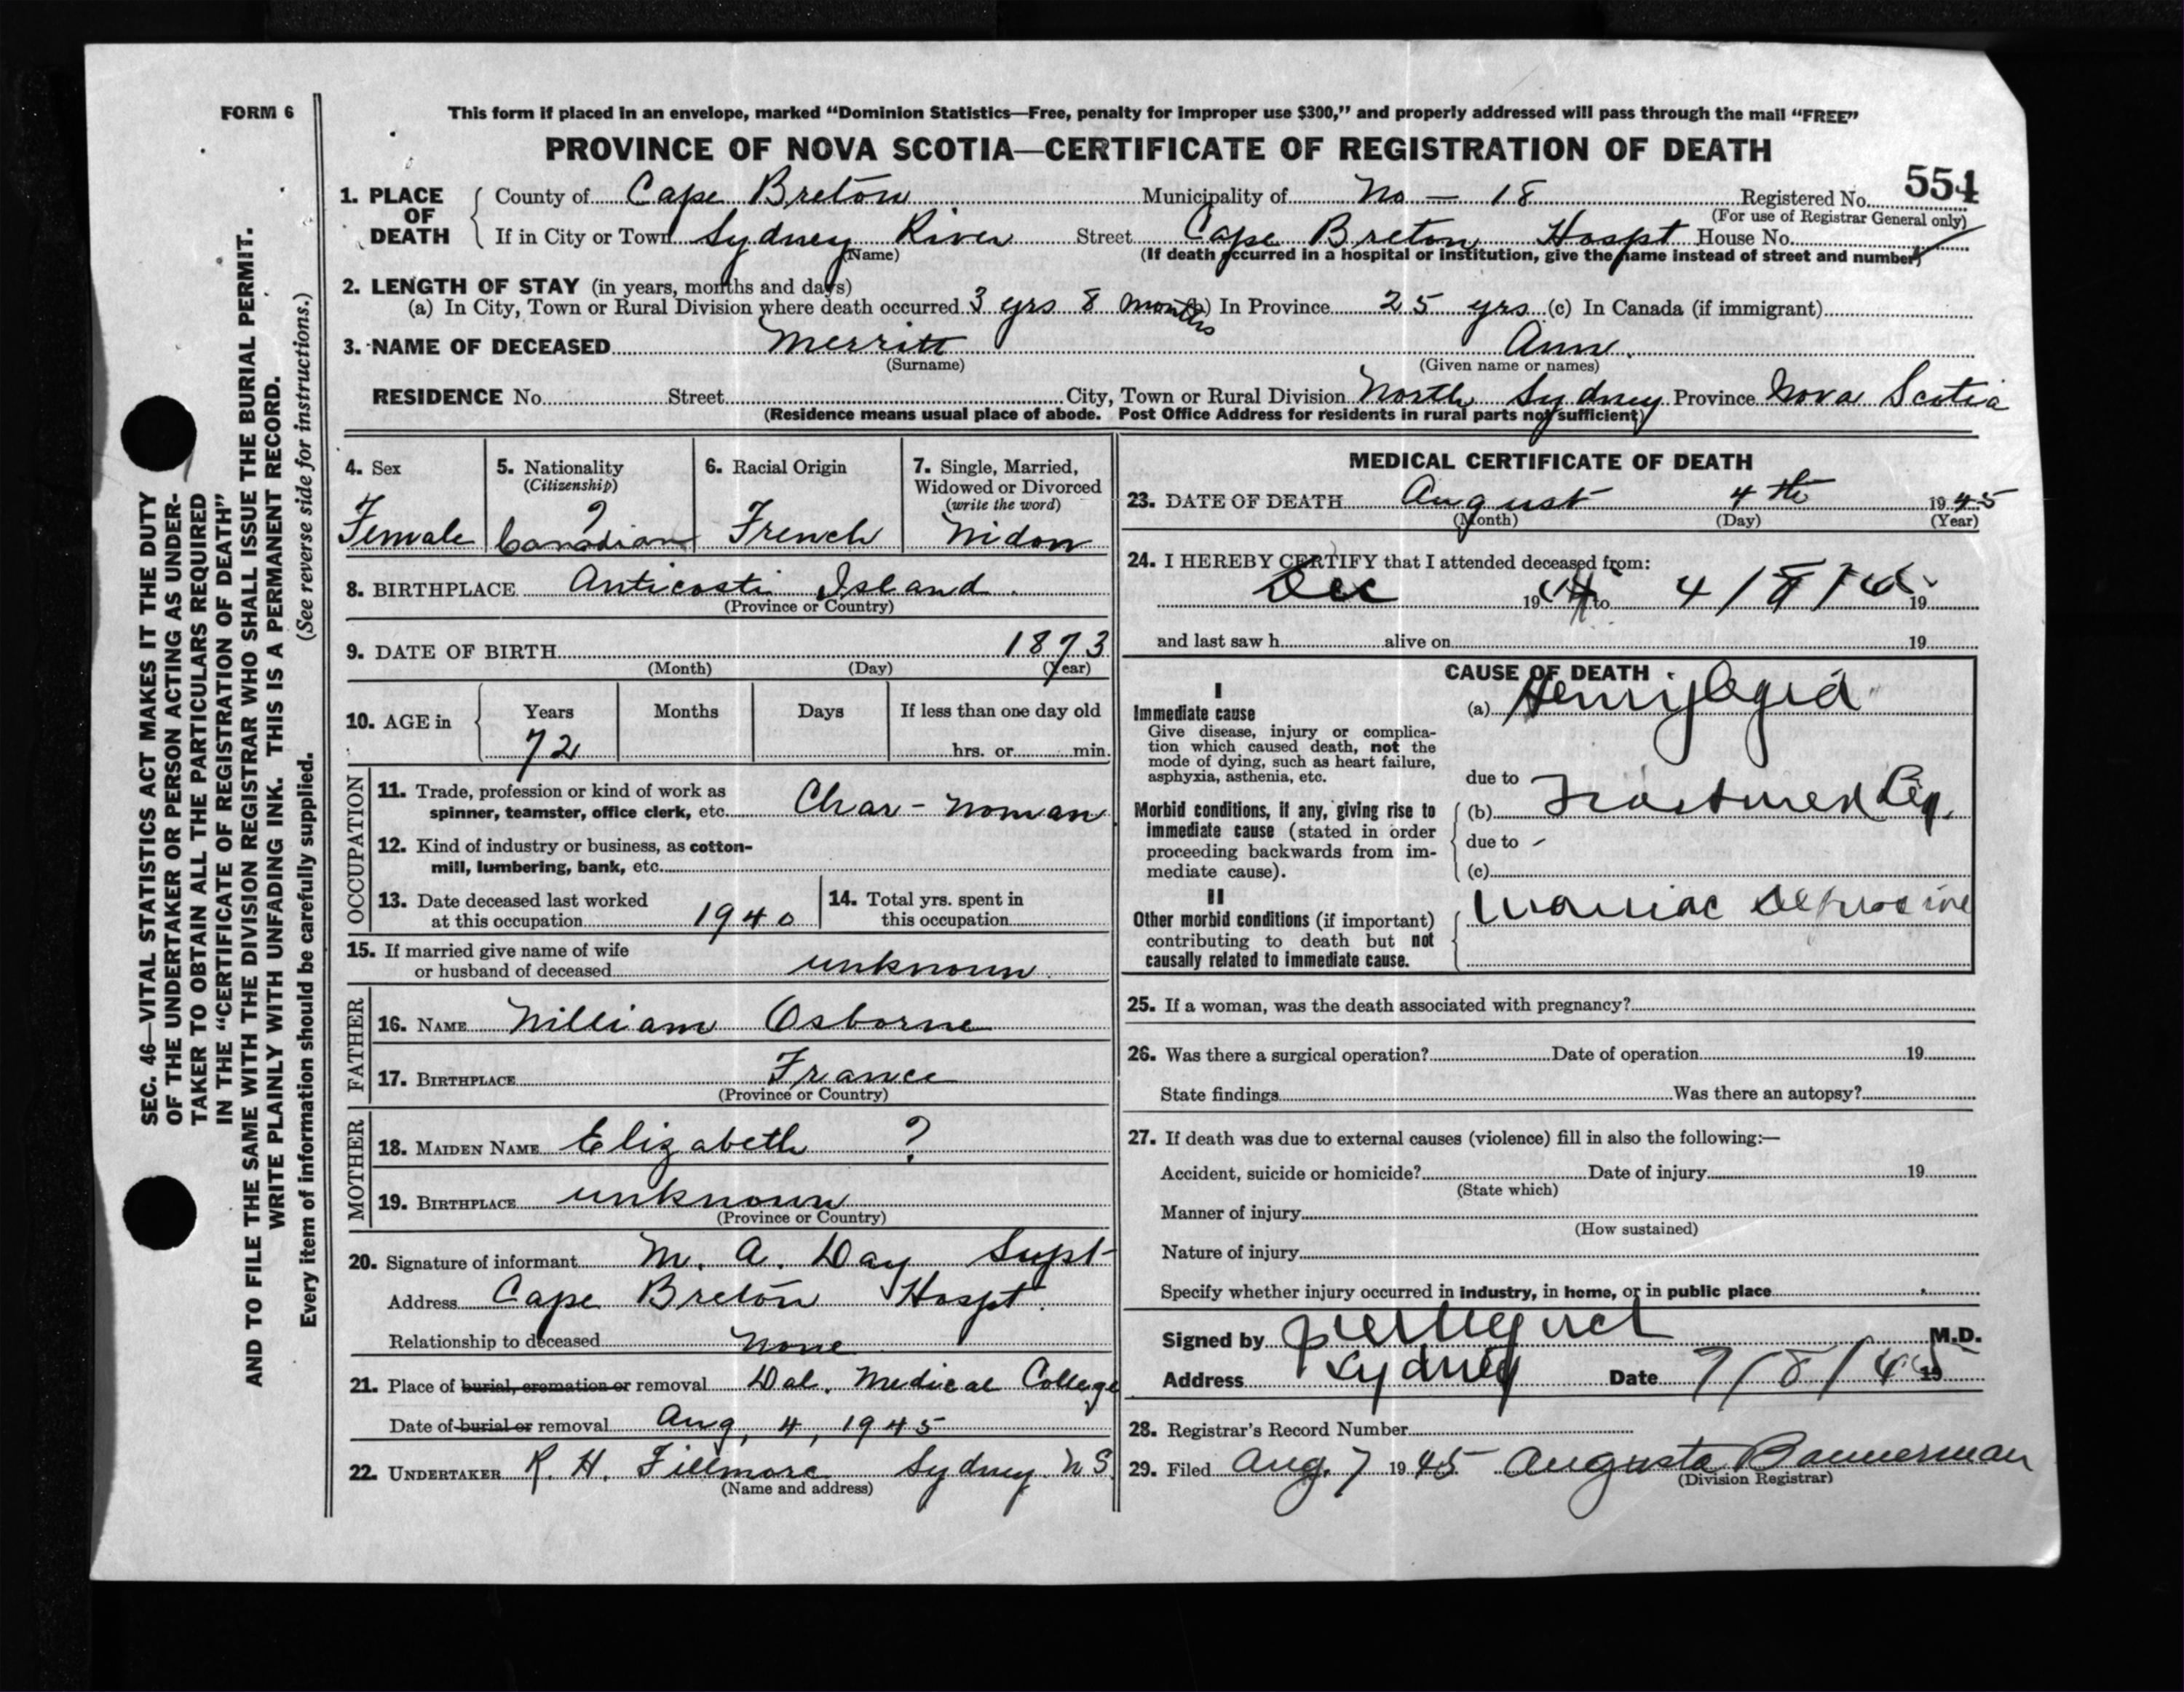 FORM 6
This form if placed in an envelope, marked “Dominion Statistics—Free, penalty for improper use $300,” and properly addressed will pass through the mail “FREE”
PROVINCE OF NOVA SCOTIA—CERTIFICATE OF REGISTRATION OF DEATH
1. PLACE OF DEATH
County of Cape Breton Municipality of No — 18 Registered No. 554
(For use of Registrar General only)
If in City or Town Sydney River Street Cape Breton Hospt House No.
(Name) (If death occurred in a hospital or institution, give the name instead of street and number)
2. LENGTH OF STAY (in years, months and days)
(a) In City, Town or Rural Division where death occurred 3 yrs 8 months (b) In Province 25 yrs (c) In Canada (if immigrant)
3. NAME OF DECEASED Merritt Ann.
(Surname) (Given name or names)
RESIDENCE No. Street City, Town or Rural Division North Sydney Province Nova Scotia
(Residence means usual place of abode. Post Office Address for residents in rural parts not sufficient)
4. Sex
Female
5. Nationality
(Citizenship)
?
Canadian
6. Racial Origin
French
7. Single, Married,
Widowed or Divorced
(write the word)
Widow
8. BIRTHPLACE Anticosti Island.
(Province or Country)
9. DATE OF BIRTH 1873
(Month) (Day) (Year)
10. AGE in
Years Months Days If less than one day old
72 hrs. or min.
OCCUPATION
11. Trade, profession or kind of work as
spinner, teamster, office clerk, etc. Char-woman
12. Kind of industry or business, as cotton-
mill, lumbering, bank, etc.
13. Date deceased last worked
at this occupation 1940
14. Total yrs. spent in
this occupation
15. If married give name of wife
or husband of deceased unknown.
FATHER
16. NAME William Osborne
17. BIRTHPLACE France
(Province or Country)
MOTHER
18. MAIDEN NAME Elizabeth ?
19. BIRTHPLACE unknown
(Province or Country)
20. Signature of informant M. A. Day Supt
Address Cape Breton Hospt.
Relationship to deceased none
21. Place of burial, cremation or removal Dal. Medical College
Date of burial or removal Aug, 4, 1945
22. UNDERTAKER R. H. Fillmore Sydney. N S.
(Name and address)
MEDICAL CERTIFICATE OF DEATH
23. DATE OF DEATH August 4th 1945
(Month) (Day) (Year)
24. I HEREBY CERTIFY that I attended deceased from:
Dec 19 to 4/8/45 19
and last saw h alive on 19
CAUSE OF DEATH
I
Immediate cause
Give disease, injury or complica-
tion which caused death, not the
mode of dying, such as heart failure,
asphyxia, asthenia, etc.
(a) Hemiplegia
due to
Morbid conditions, if any, giving rise to
immediate cause (stated in order
proceeding backwards from im-
mediate cause).
(b) Fractured Leg.
due to -
(c)
II
Other morbid conditions (if important)
contributing to death but not
causally related to immediate cause.
Maniac Depressive
25. If a woman, was the death associated with pregnancy?
26. Was there a surgical operation? Date of operation 19
State findings Was there an autopsy?
27. If death was due to external causes (violence) fill in also the following:—
Accident, suicide or homicide? Date of injury 19
(State which)
Manner of injury
(How sustained)
Nature of injury
Specify whether injury occurred in industry, in home, or in public place
Signed by M.D.
Address Sydney Date 7/8/45 19
28. Registrar's Record Number
29. Filed Aug. 7 1945 Augusta Bannerman
(Division Registrar)
SEC. 46—VITAL STATISTICS ACT MAKES IT THE DUTY
OF THE UNDERTAKER OR PERSON ACTING AS UNDER-
TAKER TO OBTAIN ALL THE PARTICULARS REQUIRED
IN THE “CERTIFICATE OF REGISTRATION OF DEATH”
AND TO FILE THE SAME WITH THE DIVISION REGISTRAR WHO SHALL ISSUE THE BURIAL PERMIT.
WRITE PLAINLY WITH UNFADING INK. THIS IS A PERMANENT RECORD.
Every item of information should be carefully supplied. (See reverse side for instructions.)